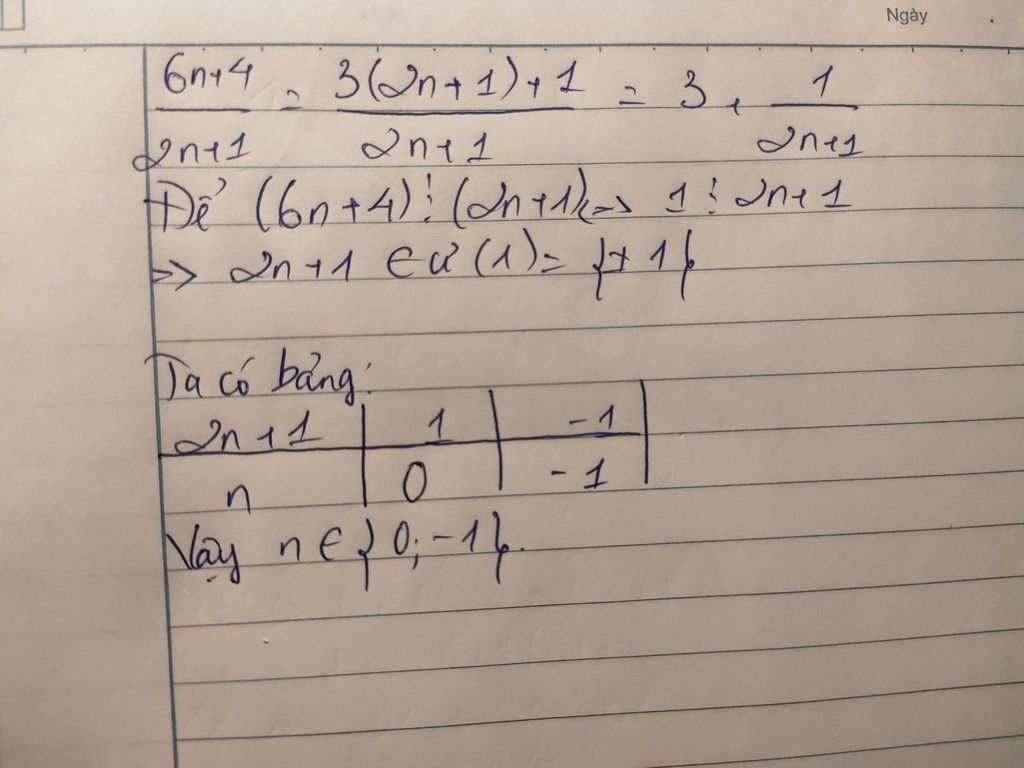 Ngày
6n+4 / 2n+1 = 3(2n+1)+1 / 2n+1 = 3 + 1 / 2n+1
Để (6n+4) ⋮ (2n+1) <=> 1 ⋮ 2n+1
=> 2n+1 ∈ Ư(1) = {± 1}
Ta có bảng:
2n+1 | 1 | -1
n | 0 | -1
Vậy n ∈ {0; -1}.